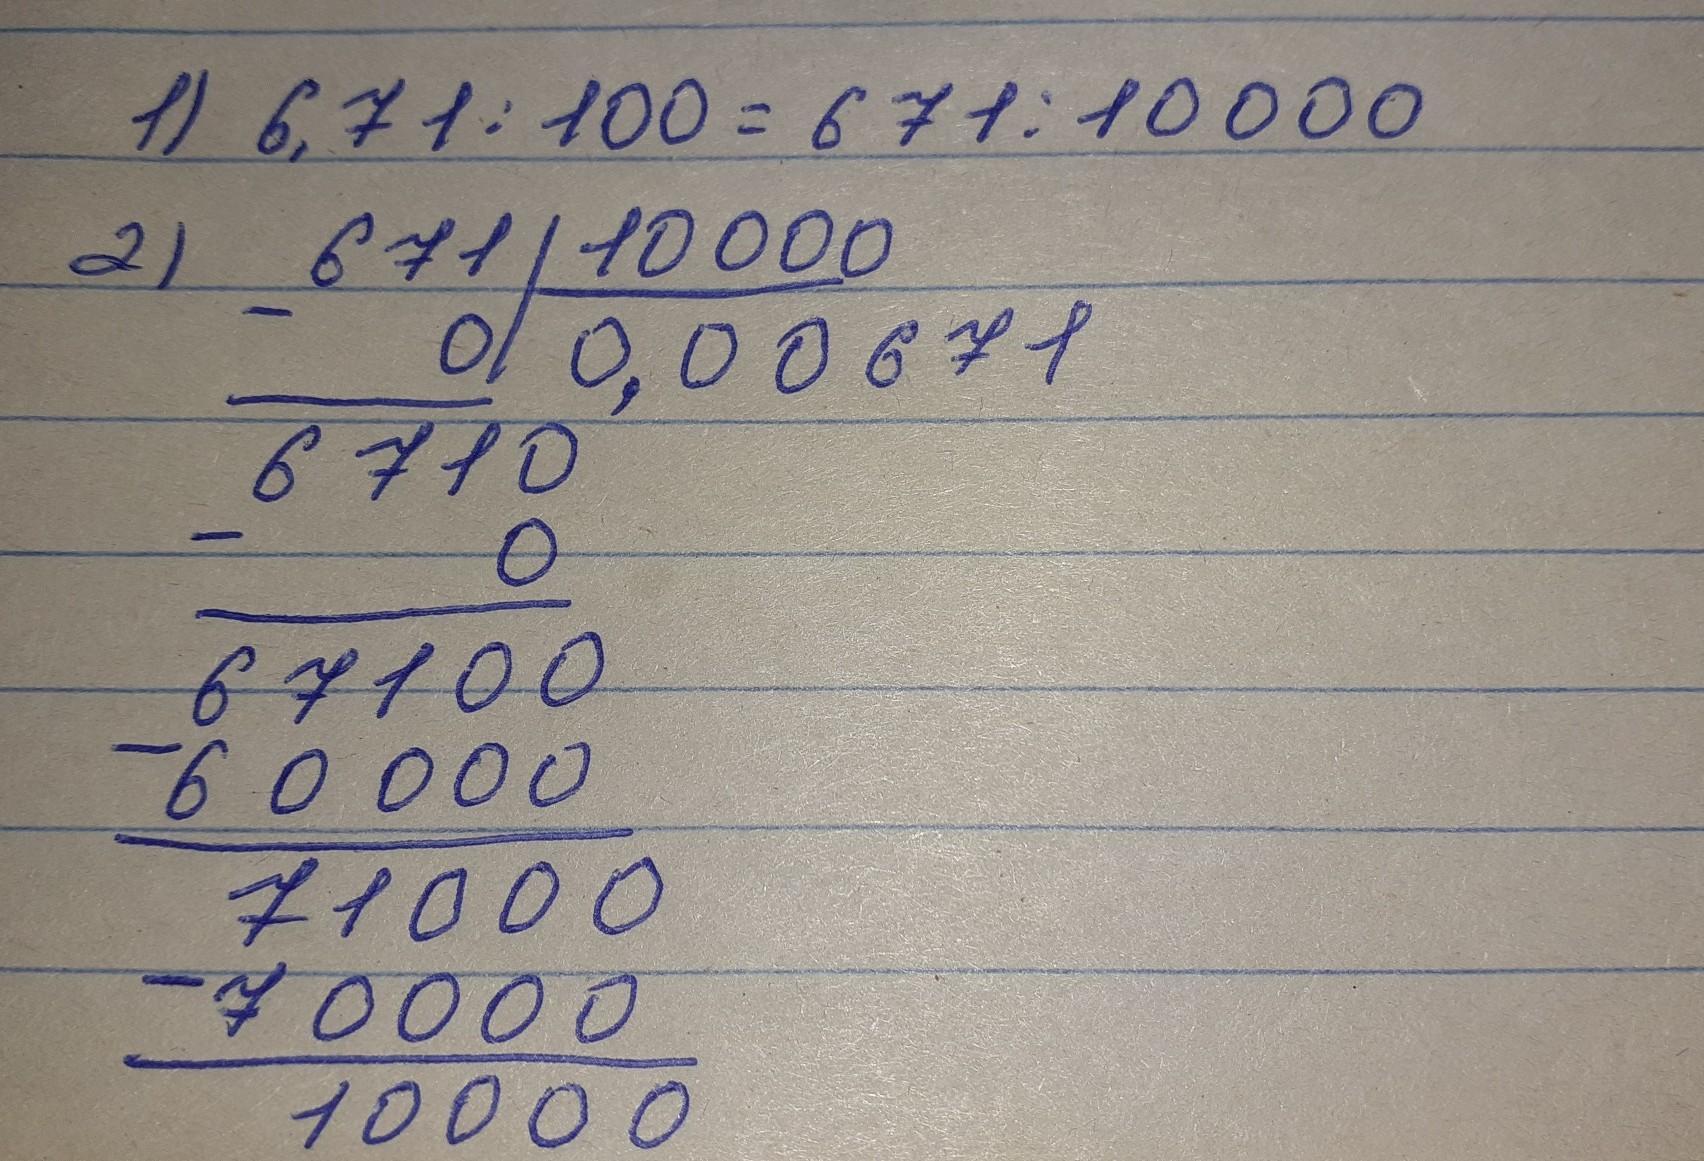 1) 6,71:100=671:10000
2) 671|10000
- 0| 0,00671
6710
- 0
67100
-60000
71000
-70000
10000